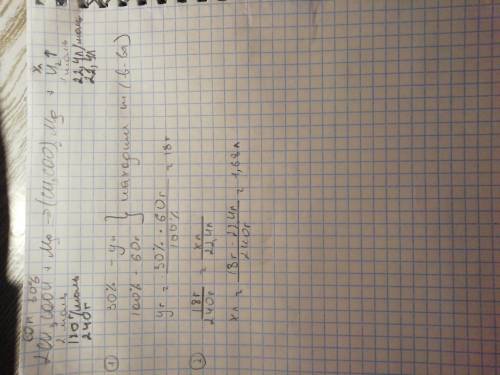 60г 30%                                  xл
2CH₃COOH + Mg → (CH₃COO)₂Mg + H₂↑
2 моль 1 моль
120г/моль 22,4л/моль
240г 22,4л
① 30% - yг
100% - 60г } находим m(в-ва)
yг = 30% · 60г / 100% = 18г
② 18г / 240г = xл / 22,4л
xл = 18г · 22,4л / 240г = 1,68л